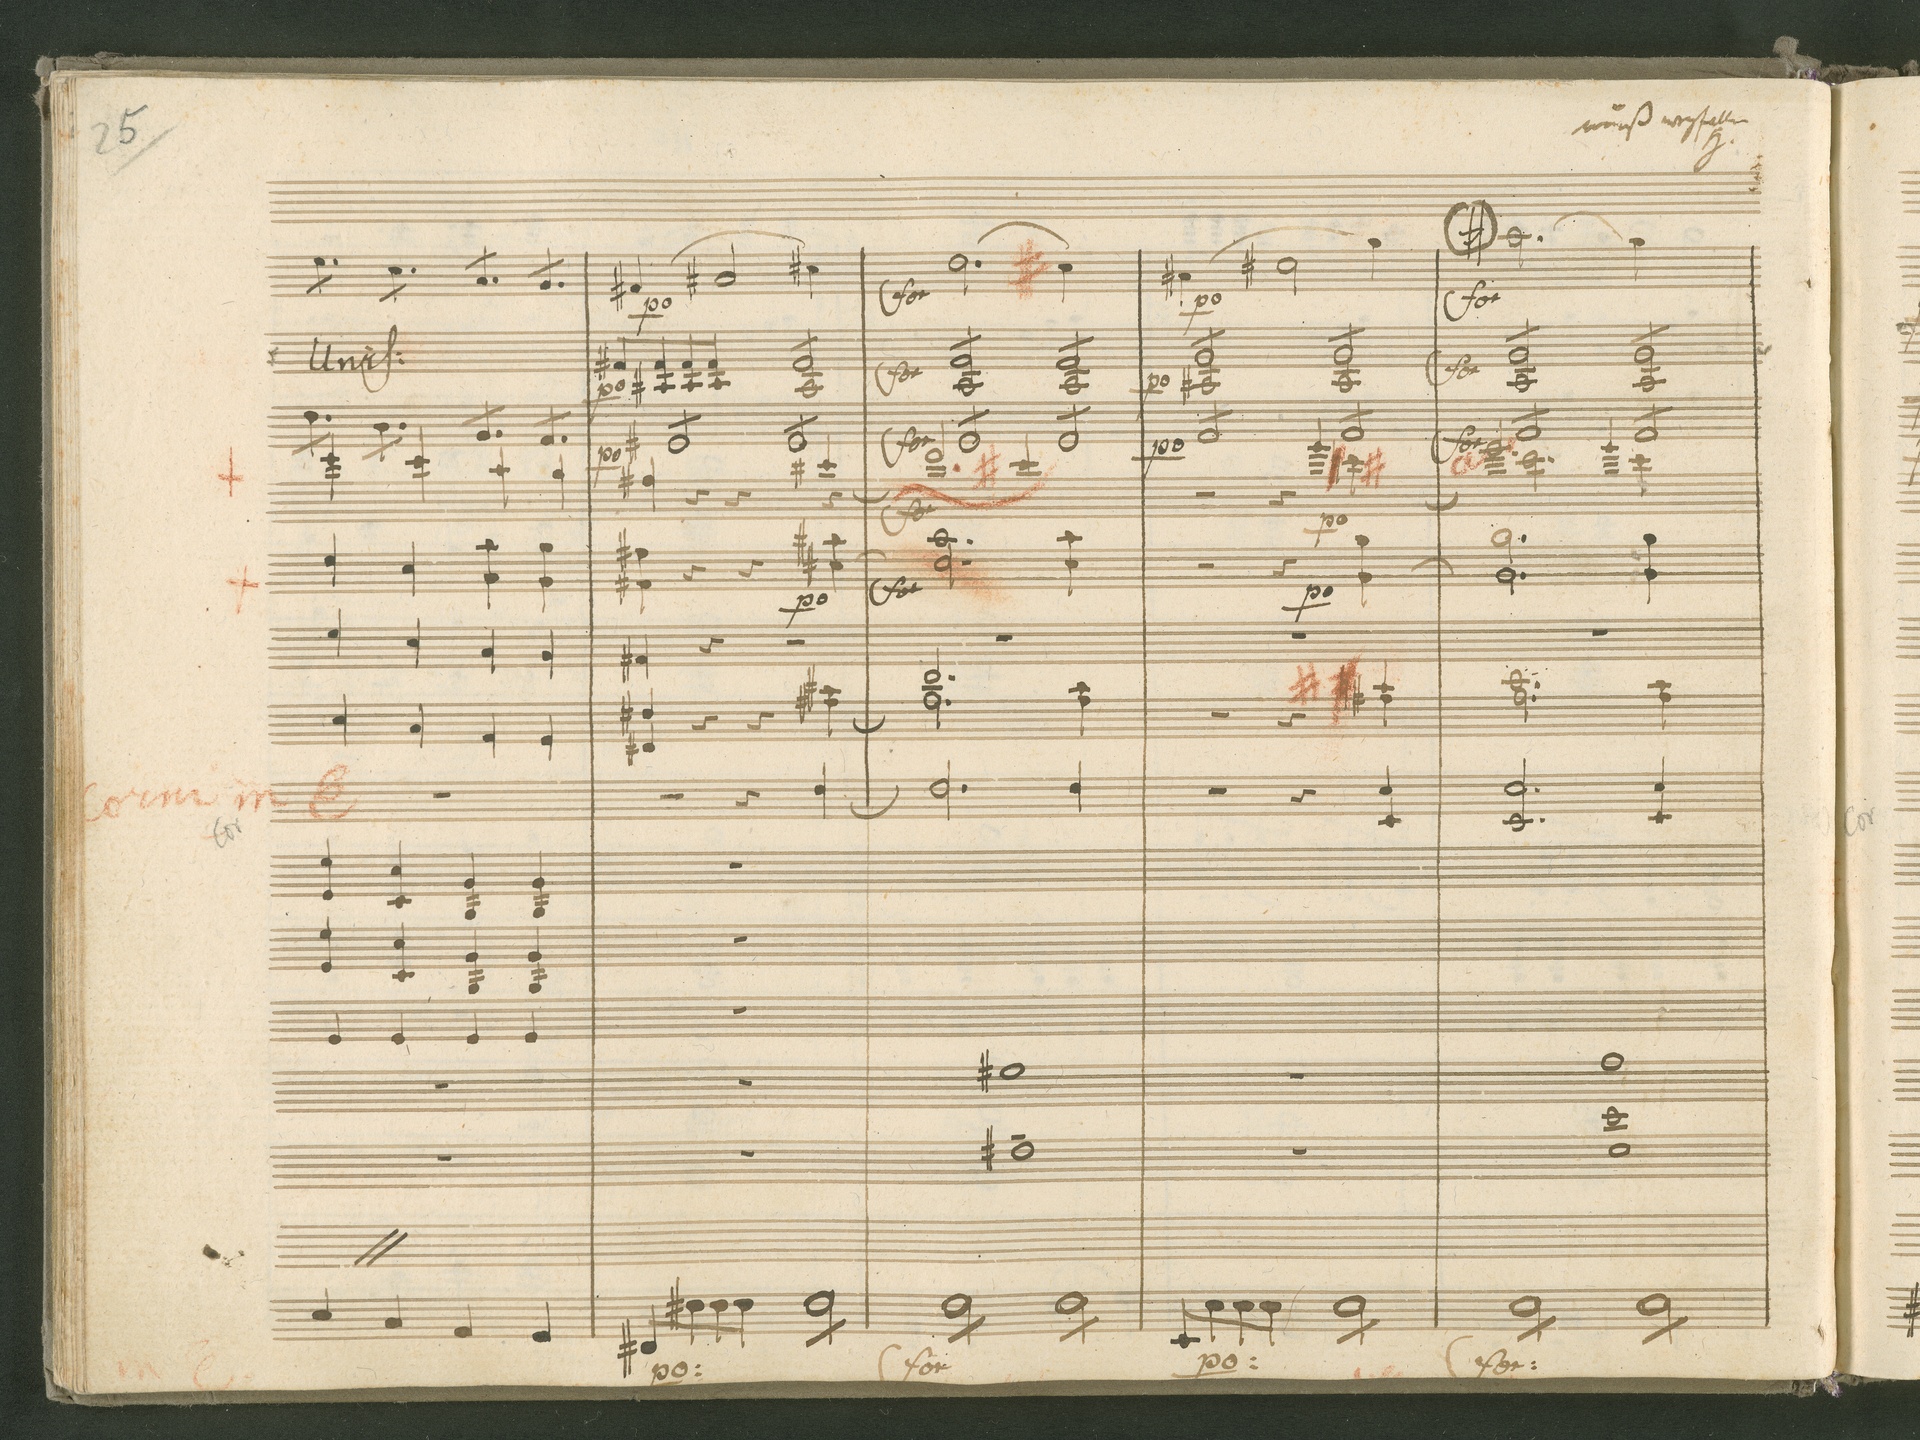 25
muß wegfallen
po
for
po
for
Unis:
po
for
po
for
po
for
po
for
for
po
po
for
po
Corni in
Cor
Cor
po:
for
po:
for: